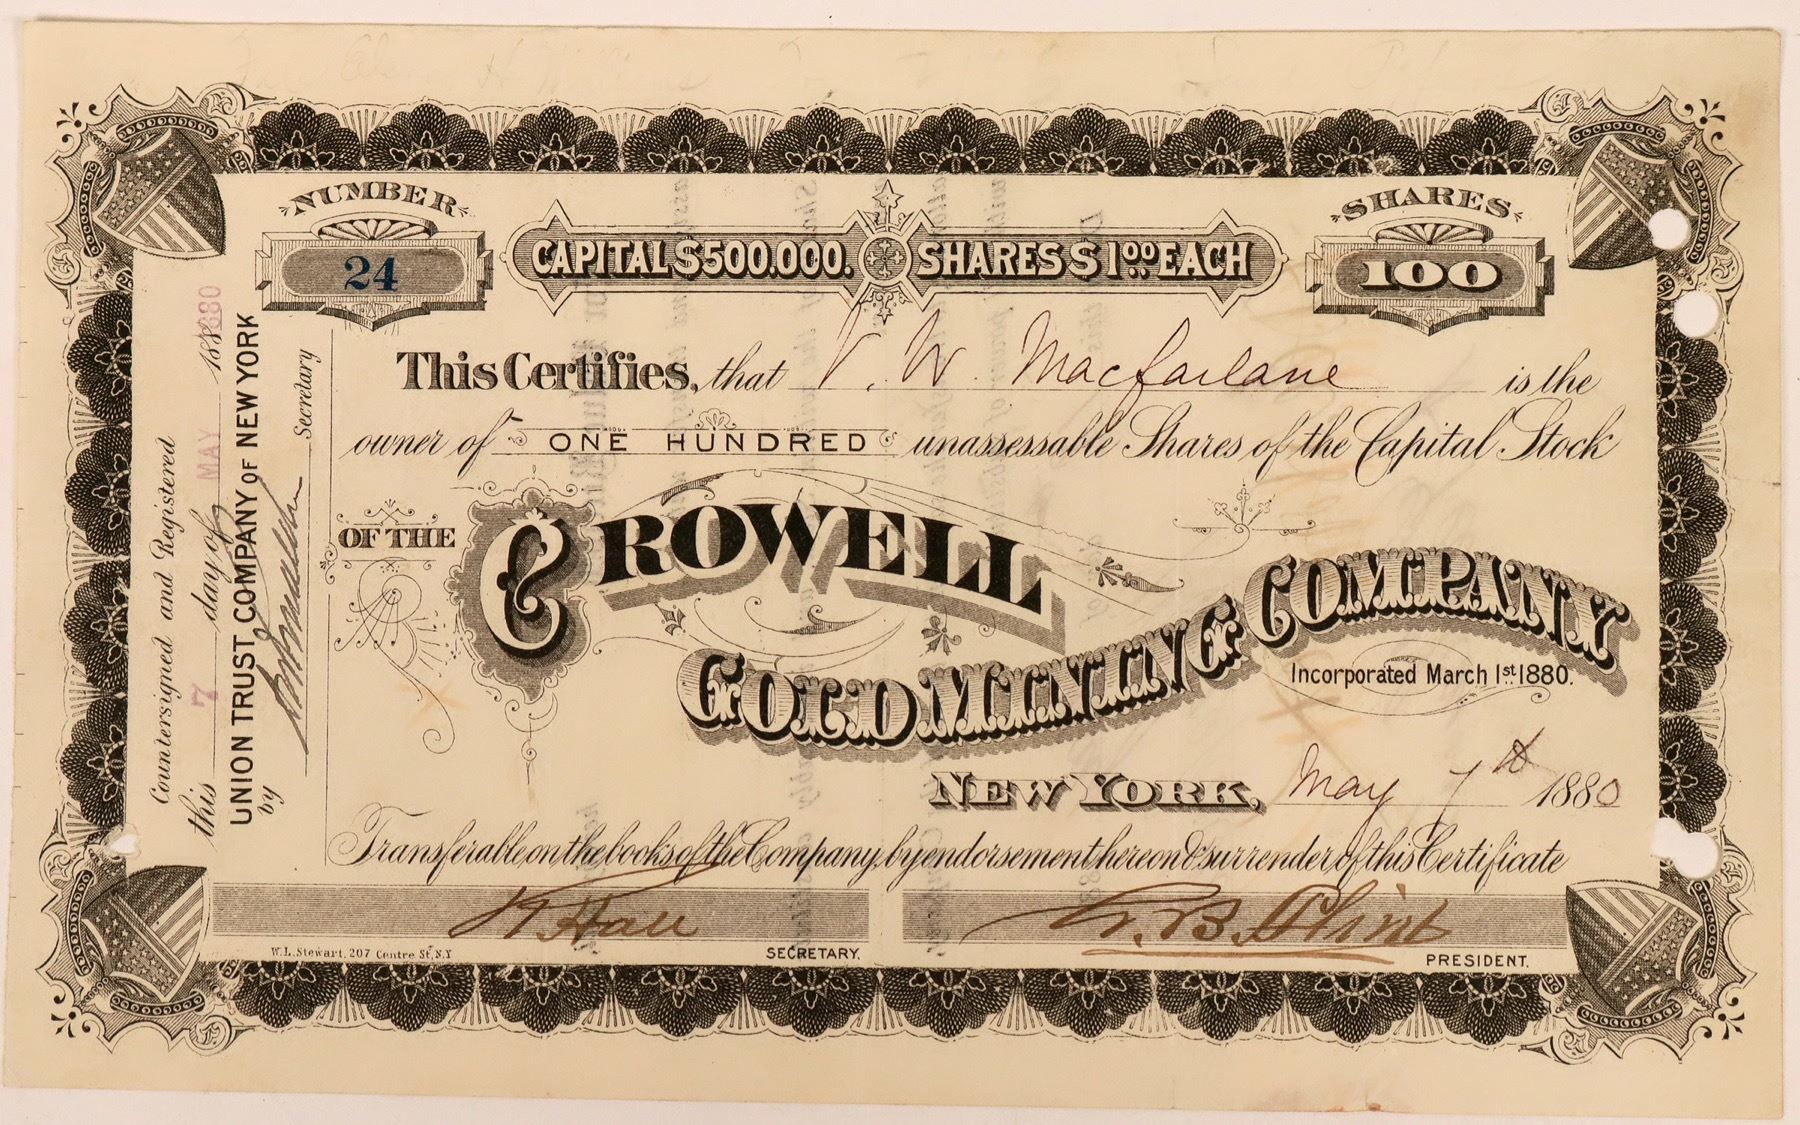 NUMBER
24
CAPITAL $500.000. SHARES $1.00 EACH
SHARES
100
This Certifies, that V. W. Macfarlane is the
owner of ONE HUNDRED unassessable Shares of the Capital Stock
OF THE CROWELL
GOLD MINING COMPANY
Incorporated March 1st 1880.
NEW YORK, May 7th 1880
Transferable on the books of the Company, by endorsement hereon & surrender of this Certificate
SECRETARY.
PRESIDENT.
W.L. Stewart, 207 Centre St, N.Y
Countersigned and Registered
this 7 day of MAY 1880
UNION TRUST COMPANY OF NEW YORK
by Secretary